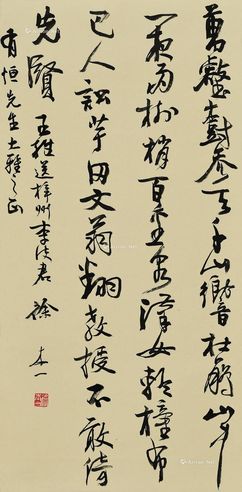 萬壑樹參天千山響杜鵑山中
一夜雨樹梢百重泉漢女輸橦布
巴人訟芋田文翁翻教授不敢倚
先賢 王維送梓州李使君 徐本一
有恒先生大雅之正